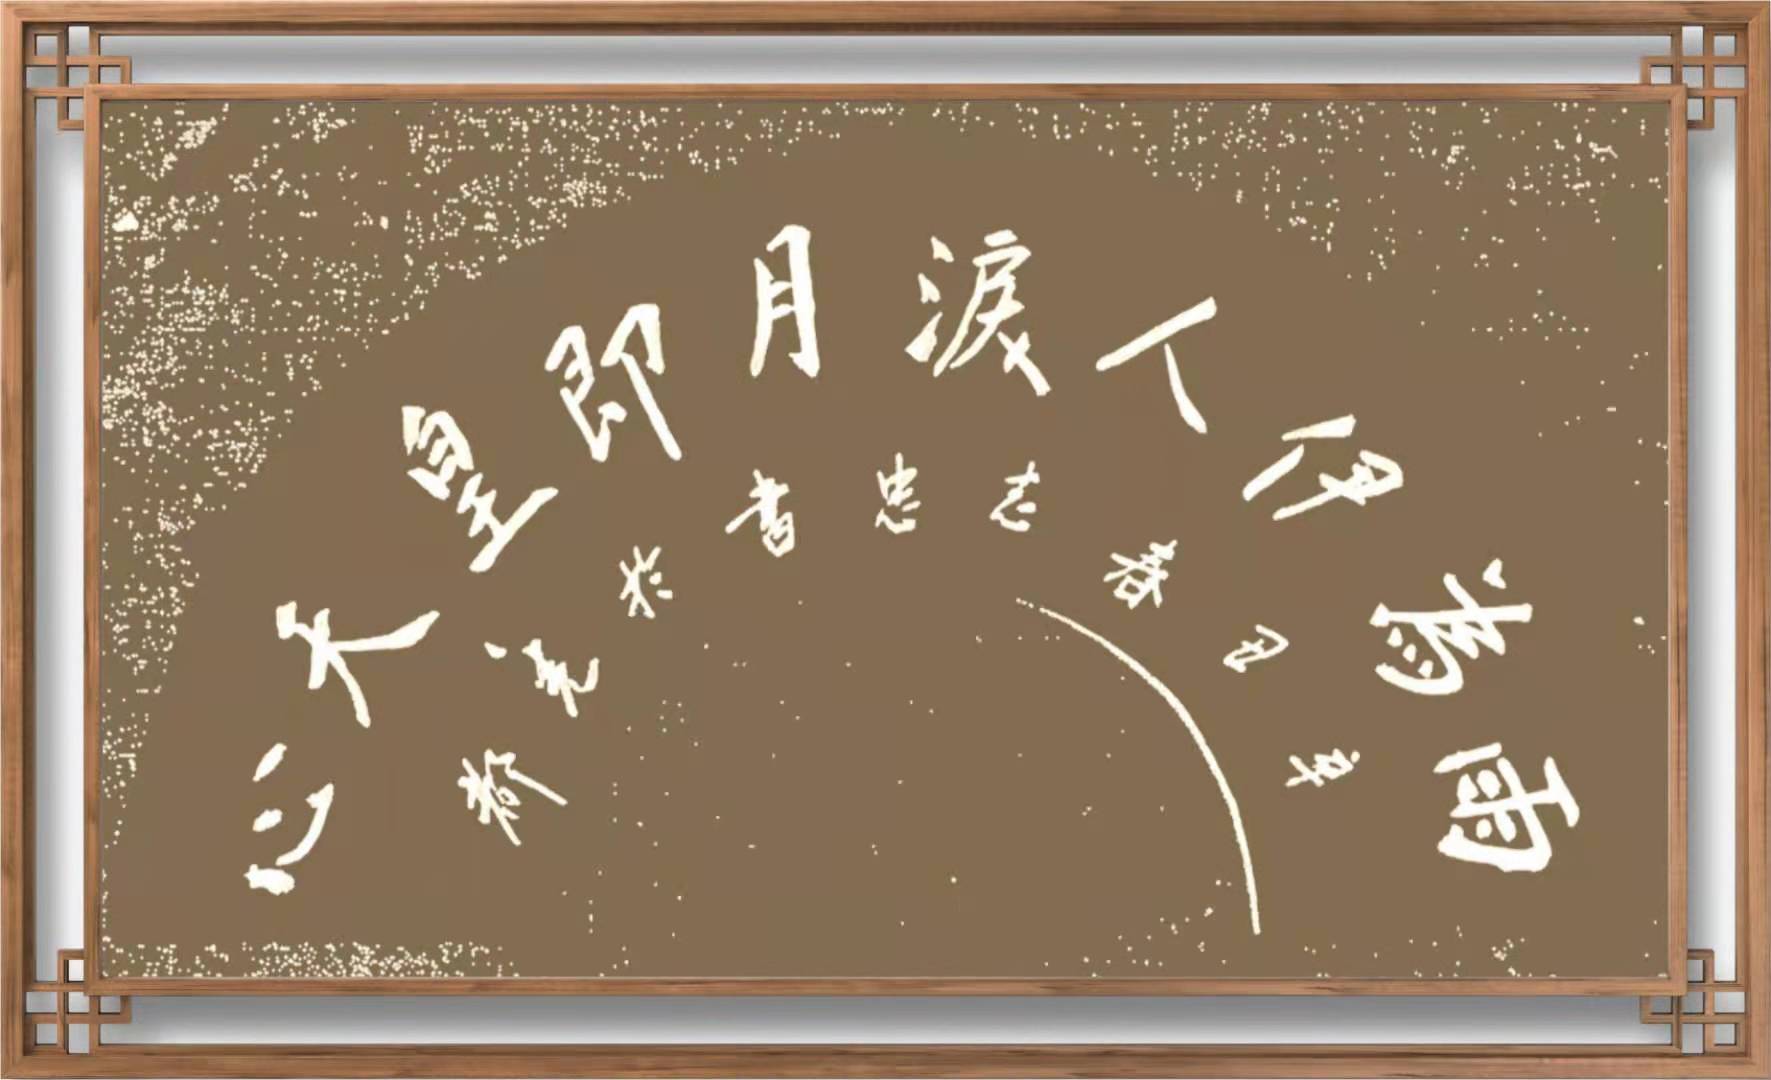 雨為伊人淚月即皇天心
辛丑春志忠書於都